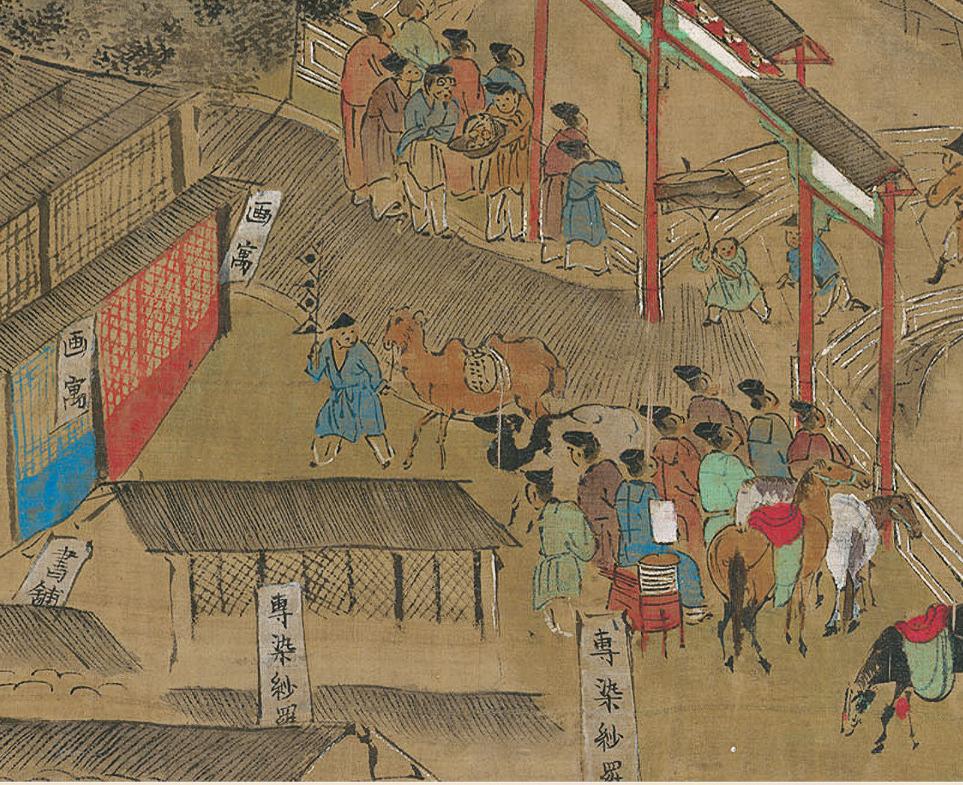 画寓
画寓
書舖
專染紗羅
專染紗羅